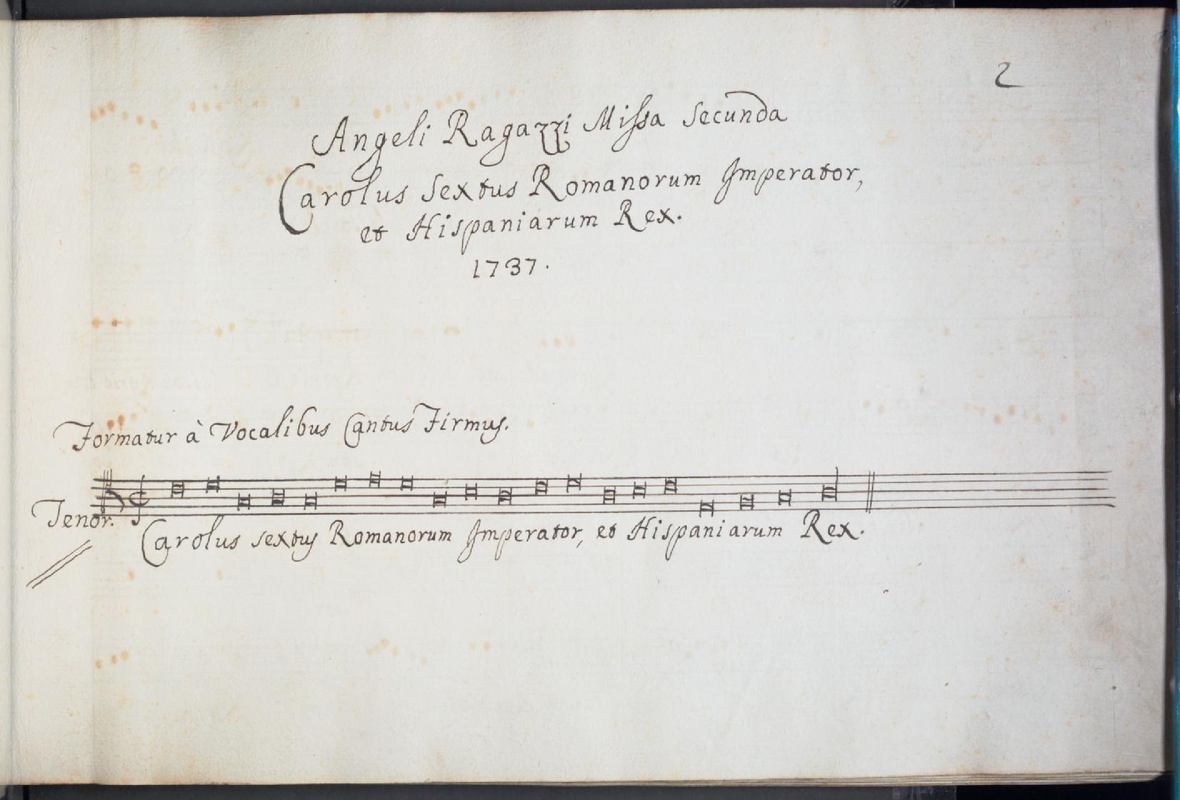 2
Angeli Ragazzi Missa Secunda
Carolus Sextus Romanorum Imperator,
et Hispaniarum Rex.
1737.
Formatur à Vocalibus Cantus Firmus.
Tenor.
Carolus sextus Romanorum Imperator, et Hispaniarum Rex.